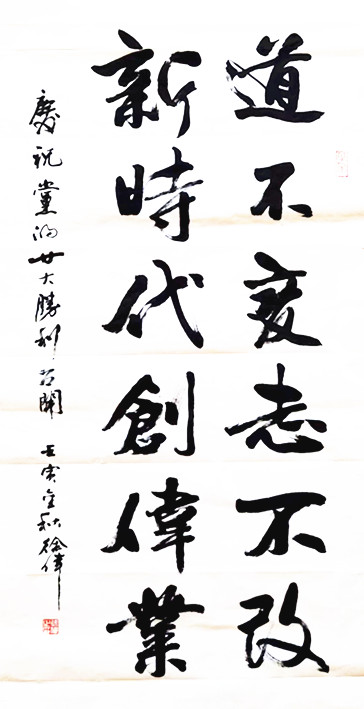 道不变志不改
新時代創偉業
慶祝黨的廿大勝利召開 壬寅金秋徐偉